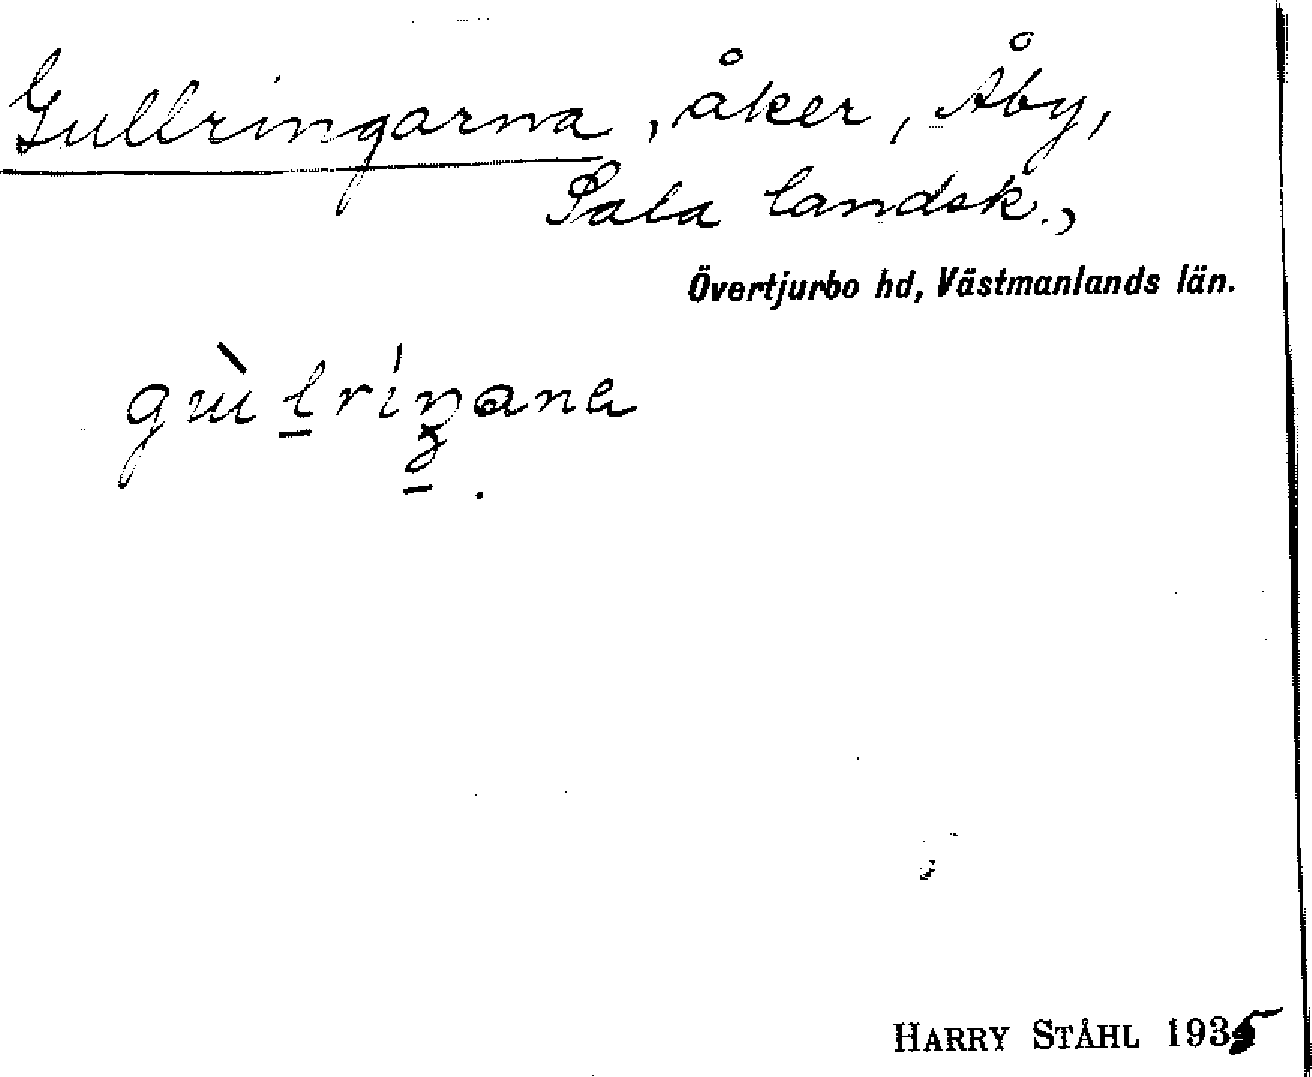 Gullringarna, åker, Åby,
Sala landsk.,
Övertjurbo hd, Västmanlands län.
HARRY STÅHL 1935